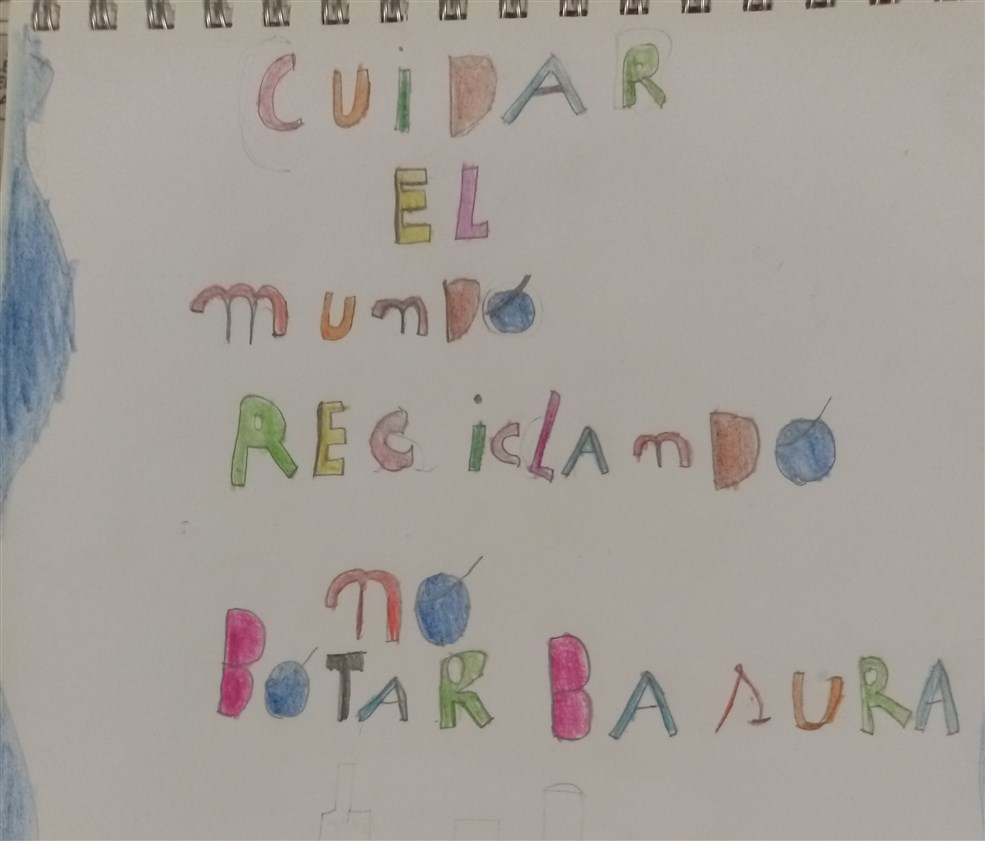 CUiDAR
EL
mUnDO
RECiCLAnDO
nO
BOTAR BASURA